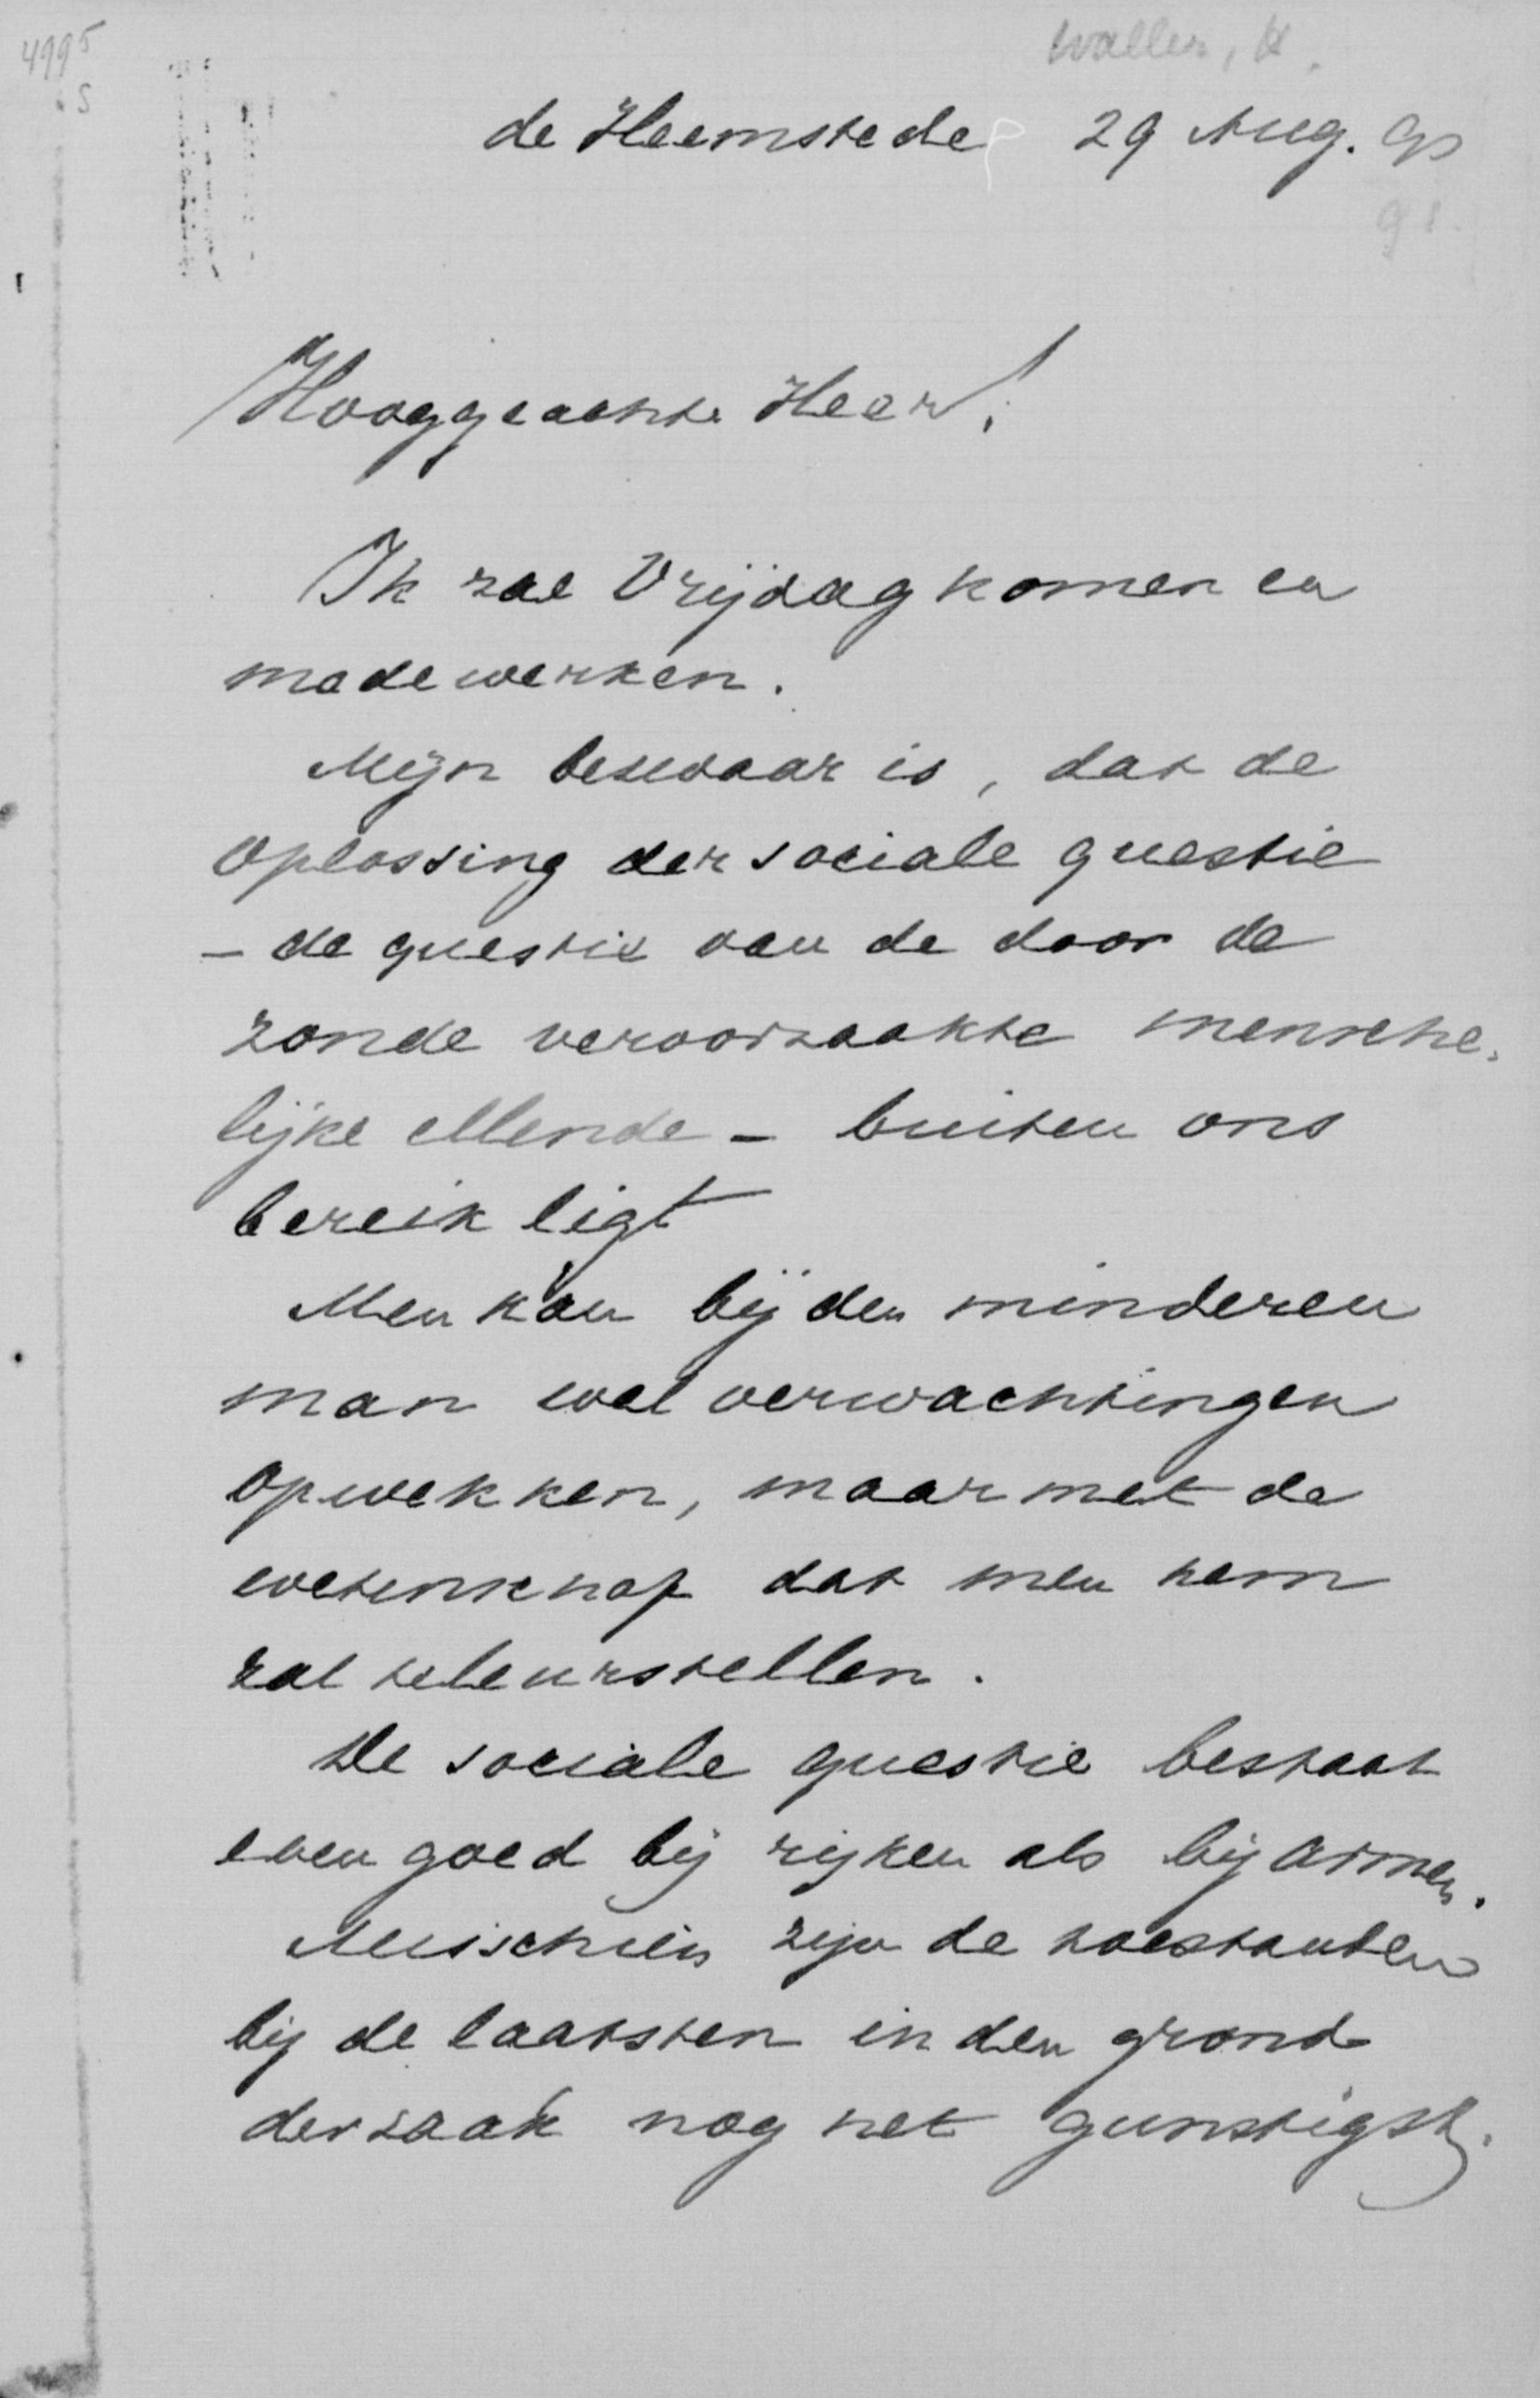 4995
Waller, H.
de Heemstede 29 Aug. 90
91.
Hooggeachte Heer!
Ik zal Vrijdag komen en
medewerken.
Mijn bezwaar is, dat de
oplossing der sociale questie
- de questie van de door de
zonde veroorzaakte mensche-
lijke ellende - buiten ons
bereik ligt
Men kan bij den minderen
man wel verwachtingen
opwekken, maar met de
wetenschap dat men hem
zal teleurstellen.
De sociale questie bestaat
even goed bij rijken als bij armen.
Misschien zijn de toestanden
bij de laatsten in den grond
der zaak nog het gunstigst.